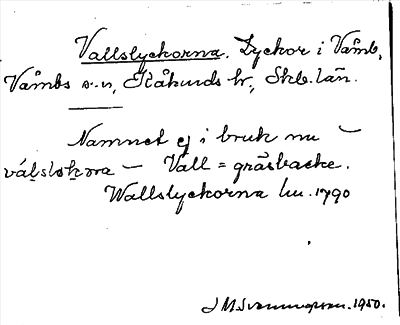 Vallslyckorna. Lyckor i Våmb,
Våmbs s:n, Kåkinds hr., Skb. län.
Namnet ej i bruk nu –
– Vall = gräsbacke.
Wallslyckorna hu. 1790
J M Svenningsson. 1950.